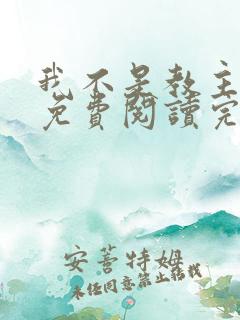 我不是教主
免費閱讀完
安蓍特姆
未经同意禁止转载